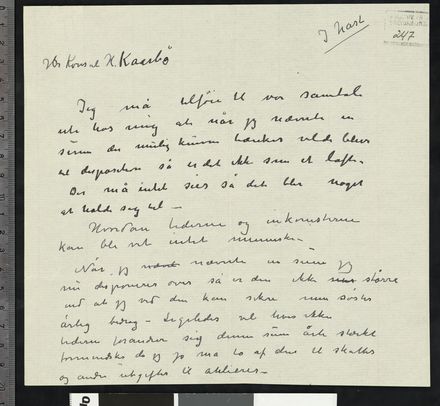 I hast
247
Hr Konsul H. Kaarbø
Jeg må tilføie til vor samtale
ute hos mig at når jeg nævnte en
sum du muligens tænker vilde blive
til disposition så er det ikke som et løfte.
Der må intet sies så det blir noget
at holde sig til –
Hvordan tiderne og inkomsterne
kan bli vet intet menneske –
Når jeg nævnte en sum jeg
nu disponerer over så er den ikke større
end at jeg ved den kan sikre min søsters
årlig bidrag – Ligeledes vil hvis ikke
tiderne forandrer sig denne sum årlig stærkt
formindskes da jeg jo må ta af den til skatter
og andre utgifter til atelieres –